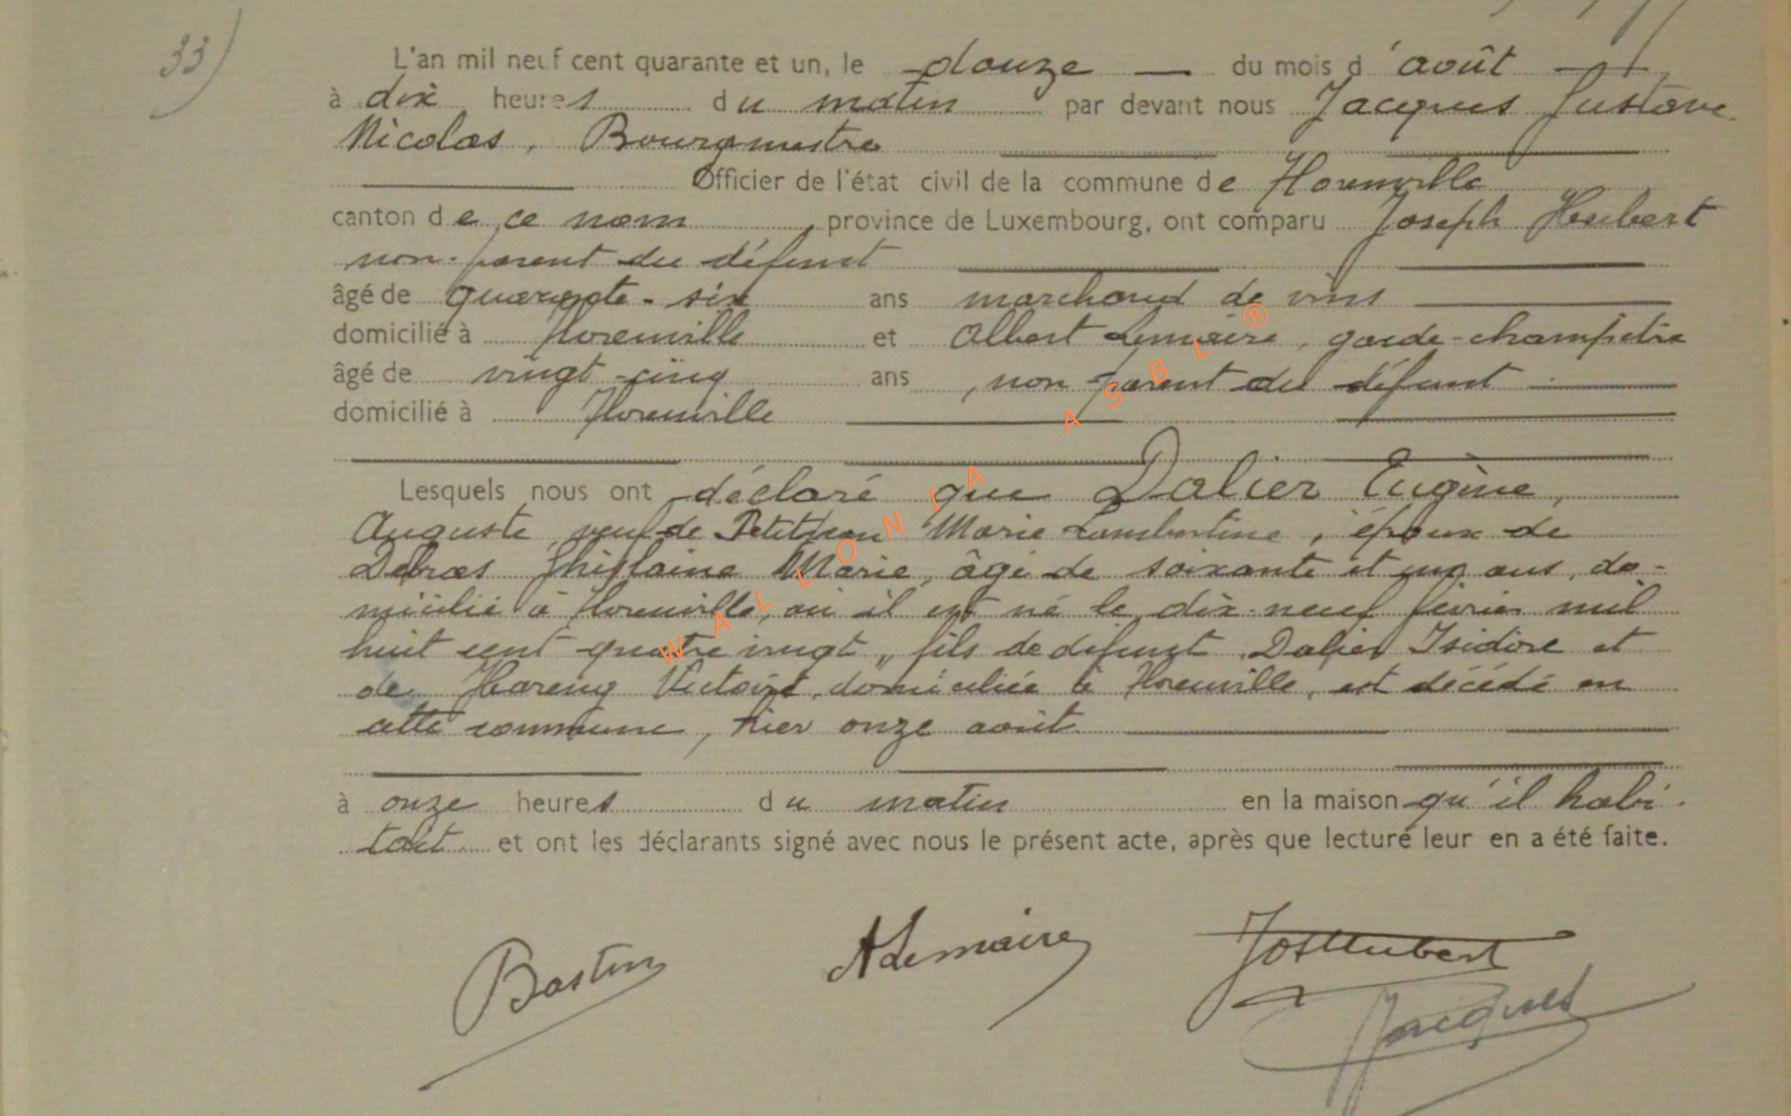 33)
L'an mil neuf cent quarante et un, le douze du mois d'août
à dix heures du matin par devant nous Jacques Gustave
Nicolas, Bourgmestre
Officier de l'état civil de la commune de Florenville
canton de ce nom, province de Luxembourg, ont comparu Joseph Hubert
non-parent du défunt
âgé de quarante-six ans marchand de vins
domicilié à Florenville et Albert Lemaire, garde-champêtre
âgé de vingt-cinq ans, non-parent du défunt
domicilié à Florenville
Lesquels nous ont déclaré que Dalier Eugène,
Auguste, veuf de Petitjean Marie Lambertine, époux de
Ghislaine Marie, âgé de soixante et un ans, do-
micilié à Florenville, où il est né le dix-neuf février mil
huit cent quatre vingt, fils de defunt Dalier Isidore et
de Hareng Victoire, domiciliée à Florenville, est décédé en
cette commune, hier onze août
à onze heures du matin en la maison qu'il habi-
tait et ont les déclarants signé avec nous le présent acte, après que lecture leur en a été faite.
Bastin ALemaire JosHubert
Jacques
WALLONIA ASBL ®